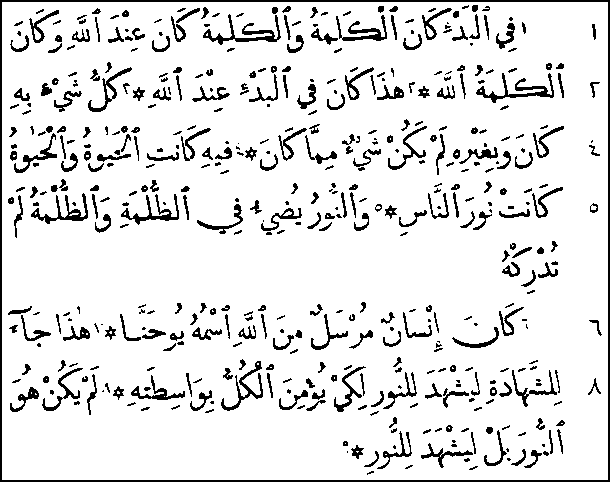 ١ ١فِي ٱلْبَدْءِ كَانَ ٱلْكَلِمَةُ وَٱلْكَلِمَةُ كَانَ عِنْدَ ٱللّٰهِ وَكَانَ
٢ ٱلْكَلِمَةُ ٱللّٰهَ * ٢هٰذَا كَانَ فِي ٱلْبَدْءِ عِنْدَ ٱللّٰهِ * ٣كُلُّ شَيْءٍ بِهِ
٤ كَانَ وَبِغَيْرِهِ لَمْ يَكُنْ شَيْءٌ مِمَّا كَانَ * ٤فِيهِ كَانَتِ ٱلْحَيٰوةُ وَٱلْحَيٰوةُ
٥ كَانَتْ نُورَ ٱلنَّاسِ * ٥وَٱلنُّورُ يُضِيءُ فِي ٱلظُّلْمَةِ وَٱلظُّلْمَةُ لَمْ
تُدْرِكْهُ
٦ ٦كَانَ إِنْسَانٌ مُرْسَلٌ مِنَ ٱللّٰهِ ٱسْمُهُ يُوحَنَّا * ٧هٰذَا جَآءَ
٨ لِلشَّهَادَةِ لِيَشْهَدَ لِلنُّورِ لِكَيْ يُؤْمِنَ ٱلْكُلُّ بِوَاسِطَتِهِ * ٨لَمْ يَكُنْ هُوَ
ٱلنُّورَ بَلْ لِيَشْهَدَ لِلنُّورِ * ٩